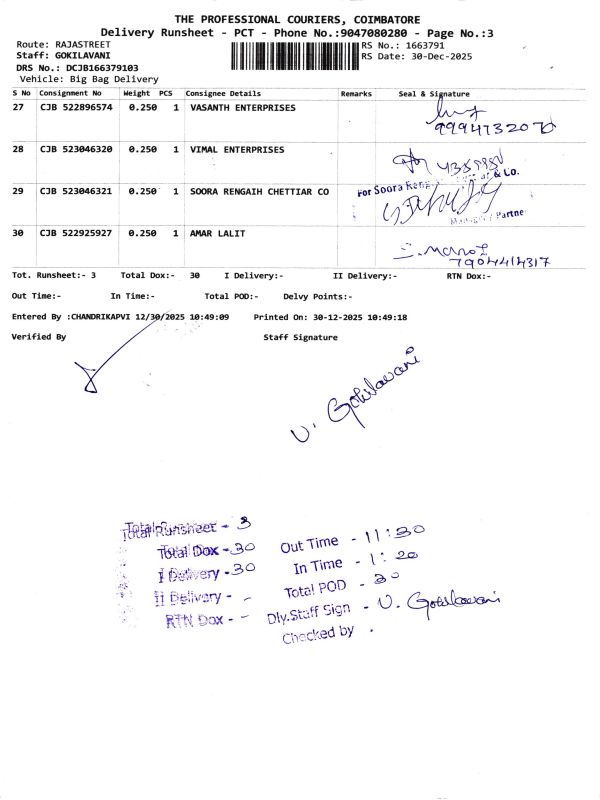 THE PROFESSIONAL COURIERS, COIMBATORE
Delivery Runsheet - PCT - Phone No.:9047080280 - Page No.:3
Route: RAJASTREET RS No.: 1663791
Staff: GOKILAVANI RS Date: 30-Dec-2025
DRS No.: DCJB166379103
Vehicle: Big Bag Delivery
S No Consignment No Weight PCS Consignee Details Remarks Seal & Signature
27 CJB 522896574 0.250 1 VASANTH ENTERPRISES
9994732070
28 CJB 523046320 0.250 1 VIMAL ENTERPRISES
& Co.
29 CJB 523046321 0.250 1 SOORA RENGAIH CHETTIAR CO For Soora
Partner
30 CJB 522925927 0.250 1 AMAR LALIT
7904414317
Tot. Runsheet:- 3 Total Dox:- 30 I Delivery:- II Delivery:- RTN Dox:-
Out Time:- In Time:- Total POD:- Delvy Points:-
Entered By :CHANDRIKAPVI 12/30/2025 10:49:09 Printed On: 30-12-2025 10:49:18
Verified By Staff Signature
V. Gokilavani
Total Runsheet - 3
Total Dox - 30 Out Time - 11:30
I Delivery - 30 In Time - 1:20
II Delivery - - Total POD - 30
RTN Dox - - Dly.Staff Sign - V. Gokilavani
Checked by